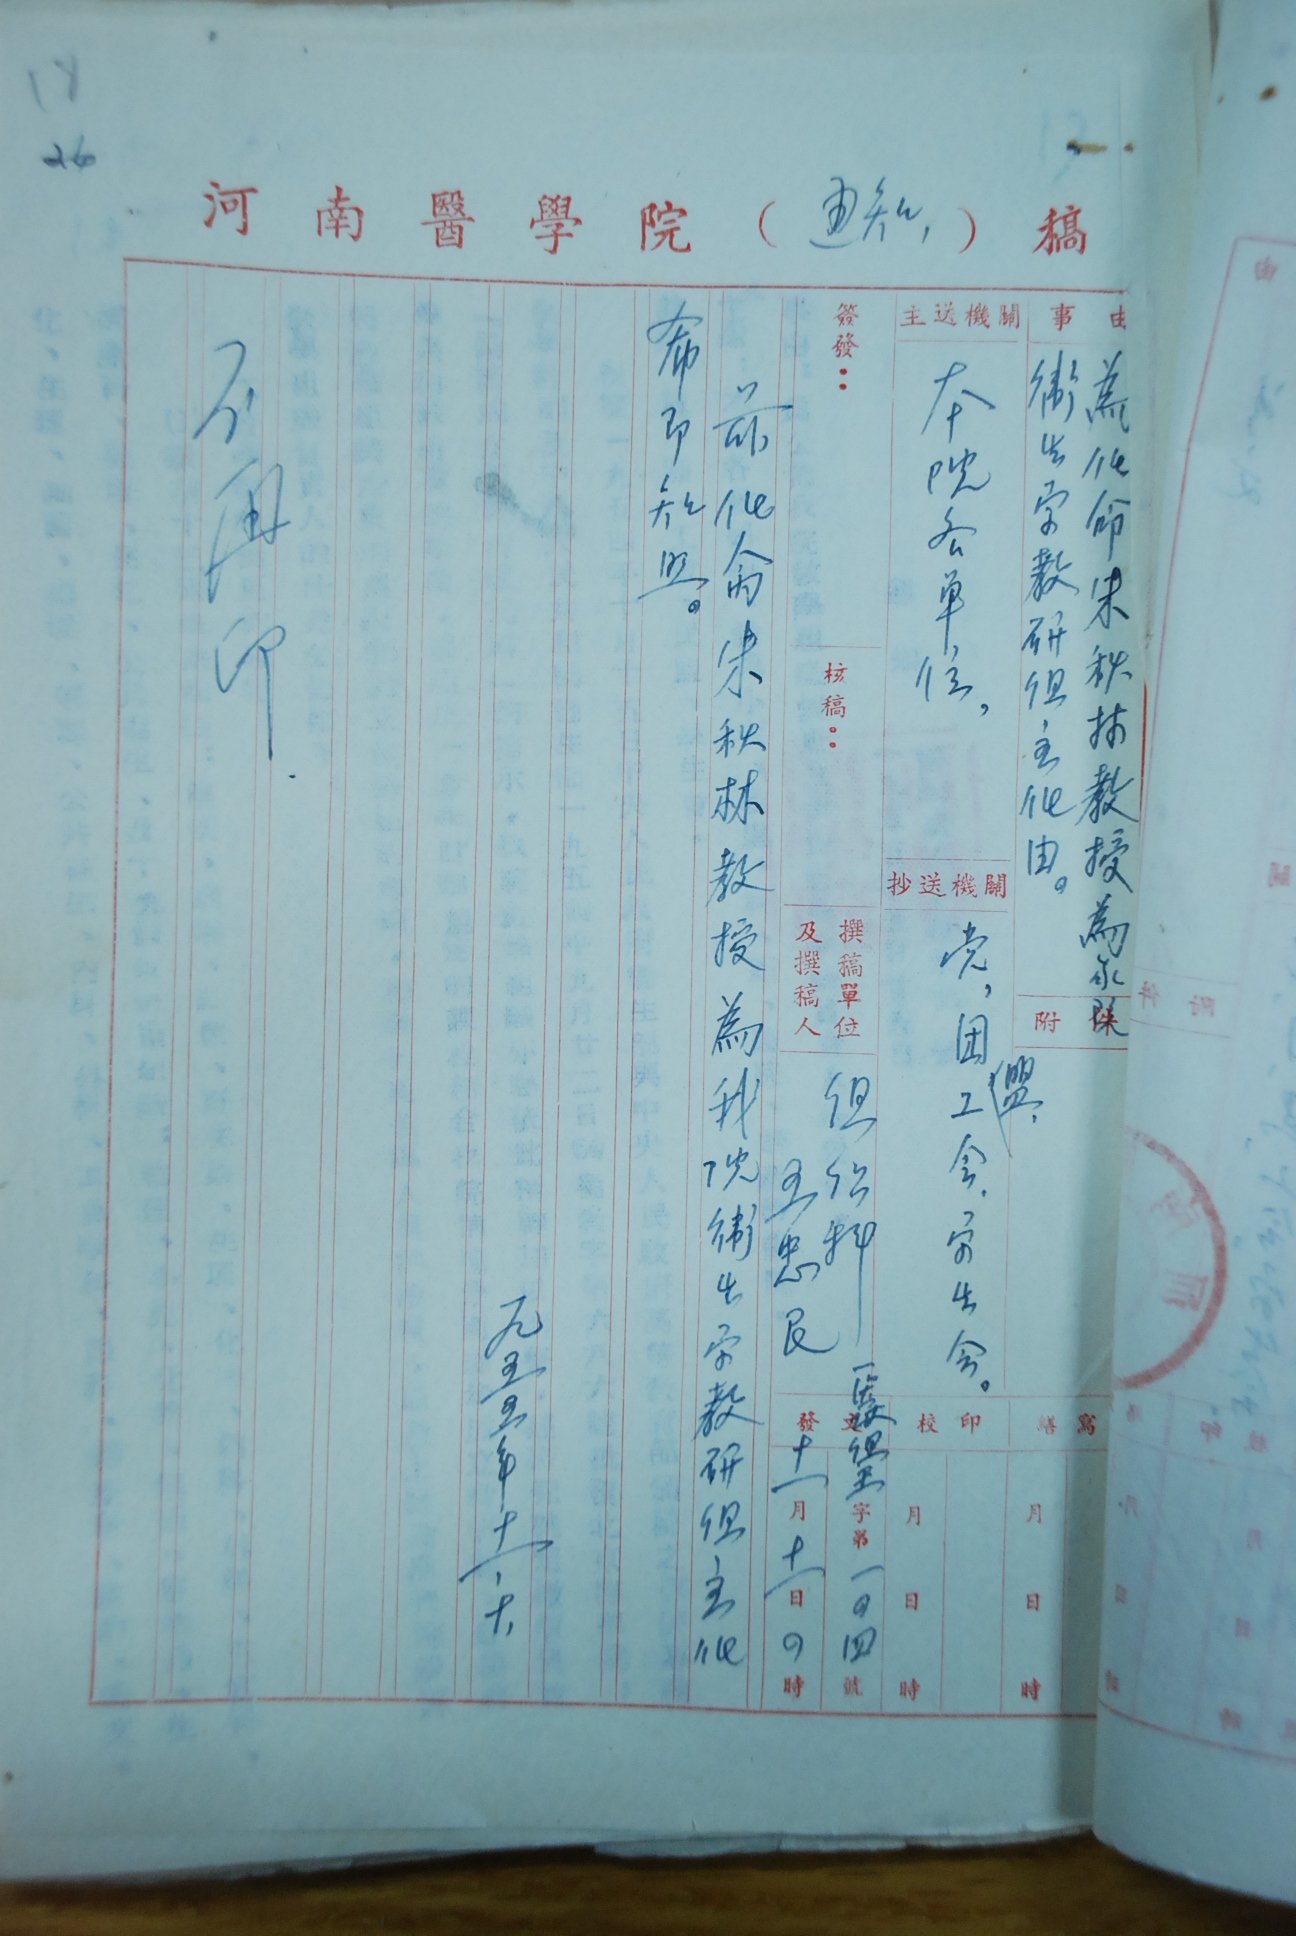 18
26
河南醫學院（通知）稿
事由
為任命宋秋林教授為我院
衛生学教研组主任由。
附
主送機關
本院各單位，
抄送機關
党，团，盟，
工会，学生会。
簽發：
核稿：
撰稿單位
及撰稿人
组织科
王忠良
繕寫
月 日 時
校印
月 日 時
發文
醫组字第一〇四號
十一月十一日 時
兹任命宋秋林教授為我院衛生学教研组主任
希即知照。
一九五五年十一、十、
不再印